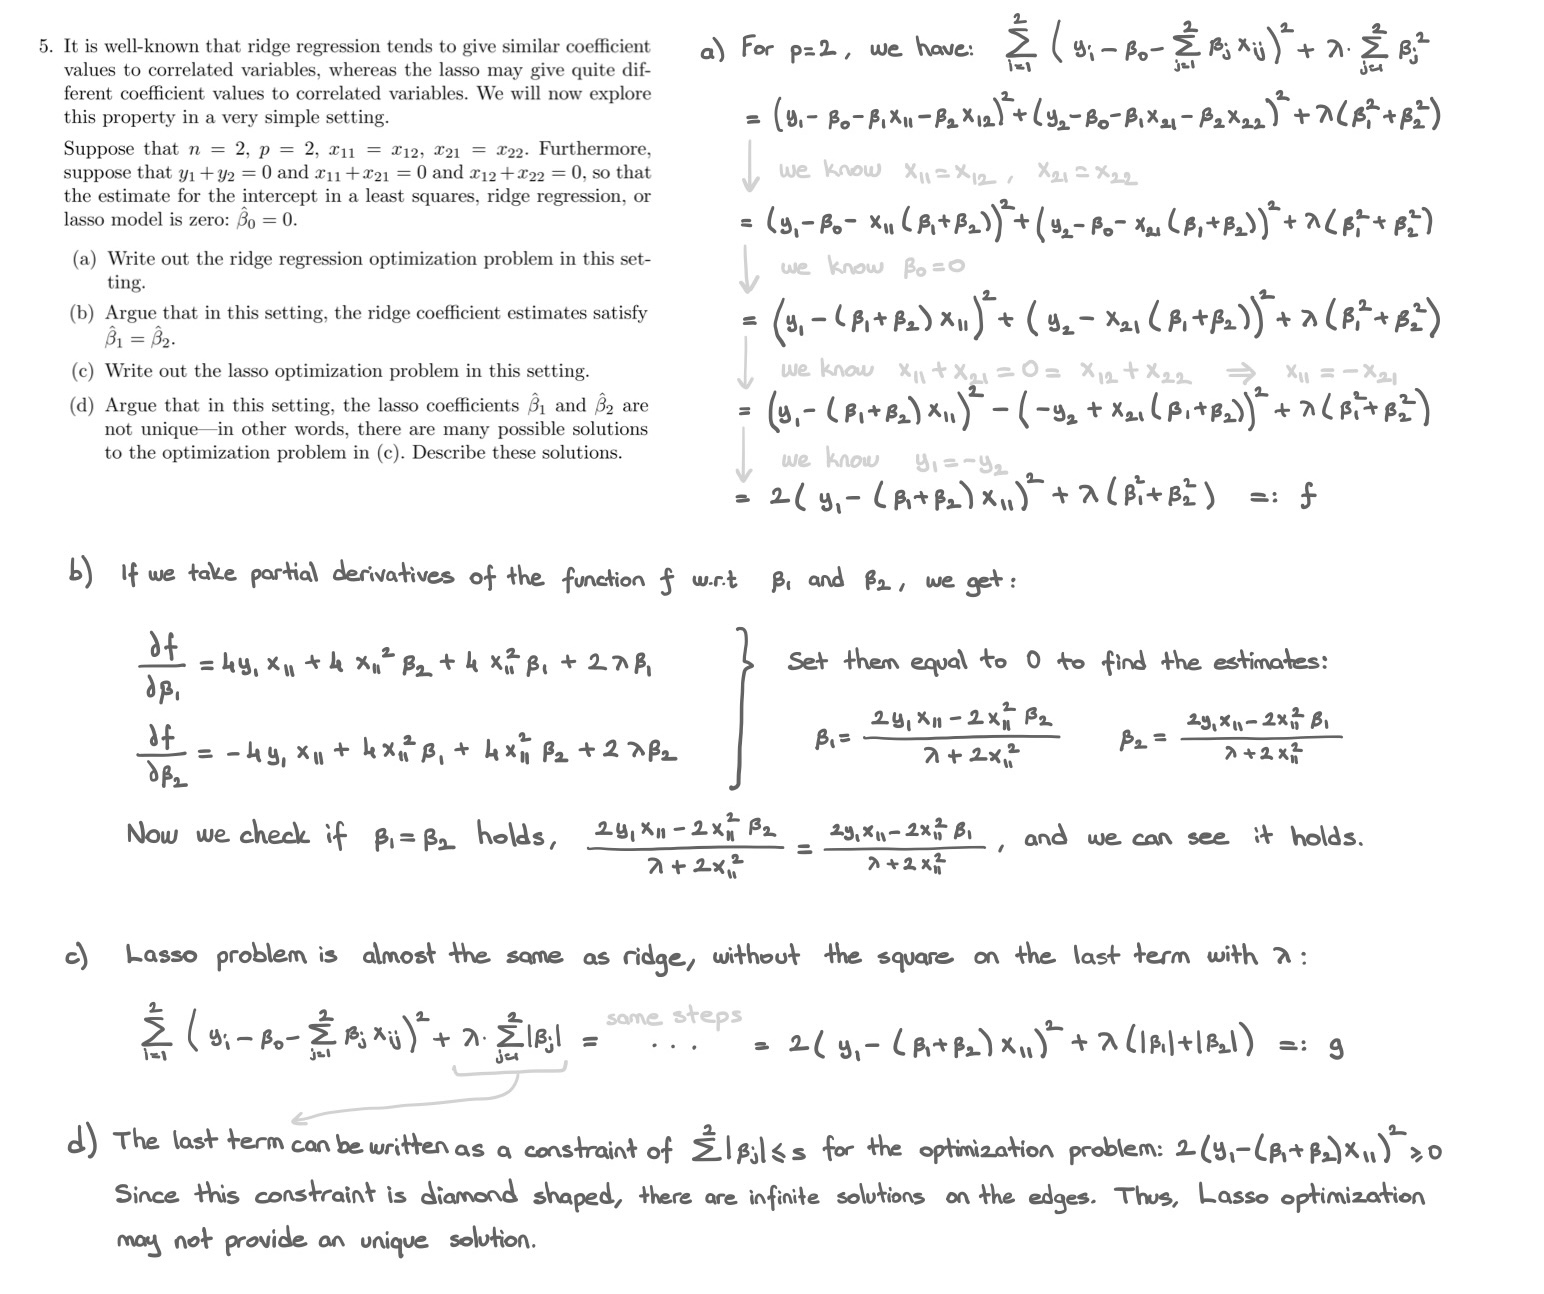 5. It is well-known that ridge regression tends to give similar coefficient
values to correlated variables, whereas the lasso may give quite dif-
ferent coefficient values to correlated variables. We will now explore
this property in a very simple setting.
Suppose that n = 2, p = 2, x₁₁ = x₁₂, x₂₁ = x₂₂. Furthermore,
suppose that y₁+y₂ = 0 and x₁₁+x₂₁ = 0 and x₁₂+x₂₂ = 0, so that
the estimate for the intercept in a least squares, ridge regression, or
lasso model is zero: β̂₀ = 0.
(a) Write out the ridge regression optimization problem in this set-
ting.
(b) Argue that in this setting, the ridge coefficient estimates satisfy
β̂₁ = β̂₂.
(c) Write out the lasso optimization problem in this setting.
(d) Argue that in this setting, the lasso coefficients β̂₁ and β̂₂ are
not unique—in other words, there are many possible solutions
to the optimization problem in (c). Describe these solutions.
a) For p=2, we have: Σ_{i=1}^{2} (yᵢ - β₀ - Σ_{j=1}^{2} βⱼ xᵢⱼ)² + λ· Σ_{j=1}^{2} βⱼ²
= (y₁ - β₀ - β₁x₁₁ - β₂x₁₂)² + (y₂ - β₀ - β₁x₂₁ - β₂x₂₂)² + λ(β₁² + β₂²)
we know x₁₁ = x₁₂, x₂₁ = x₂₂
= (y₁ - β₀ - x₁₁(β₁+β₂))² + (y₂ - β₀ - x₂₁(β₁+β₂))² + λ(β₁² + β₂²)
we know β₀ = 0
= (y₁ - (β₁+β₂)x₁₁)² + (y₂ - x₂₁(β₁+β₂))² + λ(β₁² + β₂²)
we know x₁₁ + x₂₁ = 0 = x₁₂ + x₂₂ ⇒ x₁₁ = -x₂₁
= (y₁ - (β₁+β₂)x₁₁)² - (-y₂ + x₂₁(β₁+β₂))² + λ(β₁² + β₂²)
we know y₁ = -y₂
= 2(y₁ - (β₁+β₂)x₁₁)² + λ(β₁² + β₂²) =: f
b) If we take partial derivatives of the function f w.r.t β₁ and β₂, we get:
∂f/∂β₁ = 4y₁x₁₁ + 4x₁₁²β₂ + 4x₁₁²β₁ + 2λβ₁
∂f/∂β₂ = -4y₁x₁₁ + 4x₁₁²β₁ + 4x₁₁²β₂ + 2λβ₂
} Set them equal to 0 to find the estimates:
β₁ = (2y₁x₁₁ - 2x₁₁²β₂)/(λ + 2x₁₁²) β₂ = (2y₁x₁₁ - 2x₁₁²β₁)/(λ + 2x₁₁²)
Now we check if β₁ = β₂ holds, (2y₁x₁₁ - 2x₁₁²β₂)/(λ + 2x₁₁²) = (2y₁x₁₁ - 2x₁₁²β₁)/(λ + 2x₁₁²), and we can see it holds.
c) Lasso problem is almost the same as ridge, without the square on the last term with λ:
Σ_{i=1}^{2} (yᵢ - β₀ - Σ_{j=1}^{2} βⱼ xᵢⱼ)² + λ· Σ_{j=1}^{2} |βⱼ| = same steps ... = 2(y₁ - (β₁+β₂)x₁₁)² + λ(|β₁|+|β₂|) =: g
d) The last term can be written as a constraint of Σ²|βⱼ| ≤ s for the optimization problem: 2(y₁-(β₁+β₂)x₁₁)² ≥ 0
Since this constraint is diamond shaped, there are infinite solutions on the edges. Thus, Lasso optimization
may not provide an unique solution.